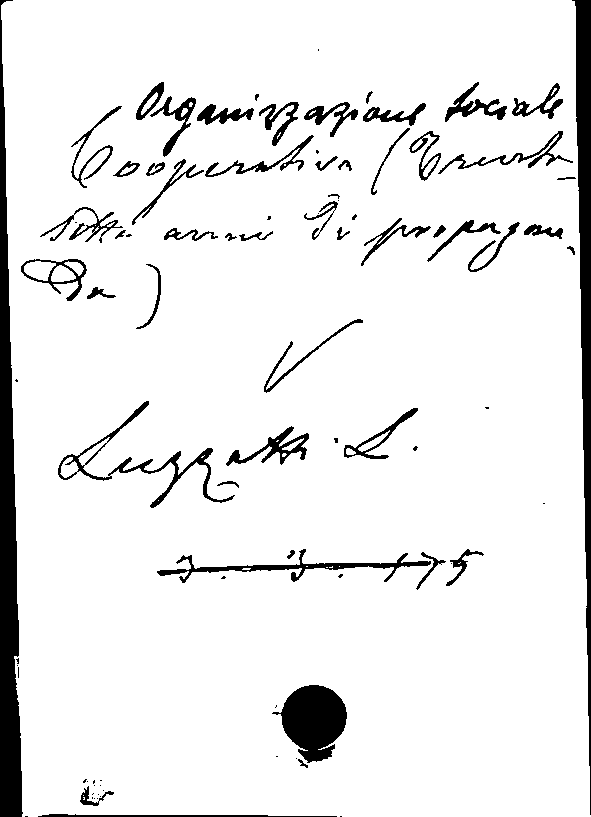 Organizzazione sociale
Cooperativa (Trenta-
sette anni di propagan-
da)
V
Luzzatti L.
3. 3. 175